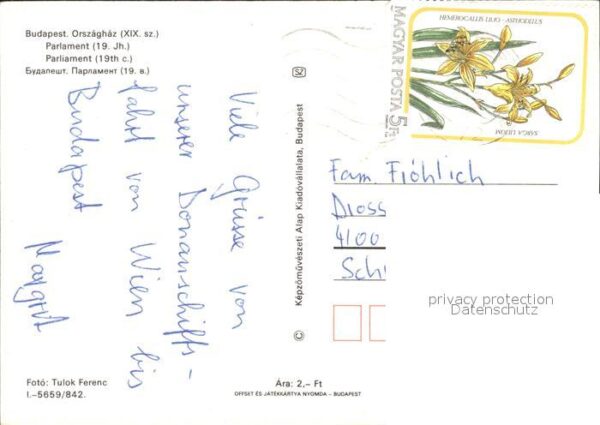 Budapest. Országház (XIX. sz.)
Parlament (19. Jh.)
Parliament (19th c.)
Будапешт. Парламент (19. в.)
Viele Grüsse von
unserer Donauschiffs-
fahrt von Wien bis
Budapest
Margrit
Fotó: Tulok Ferenc
I.–5659/842.
Ára: 2,– Ft
OFFSET ÉS JÁTÉKKÁRTYA NYOMDA – BUDAPEST
© Képzőművészeti Alap Kiadóvállalata, Budapest
MAGYAR POSTA 5Ft
HEMEROCALLIS LILIO-ASPHODELUS
SÁRGA LILIOM
Fam. Fröhlich
Dioss
4100
Sch
privacy protection
Datenschutz